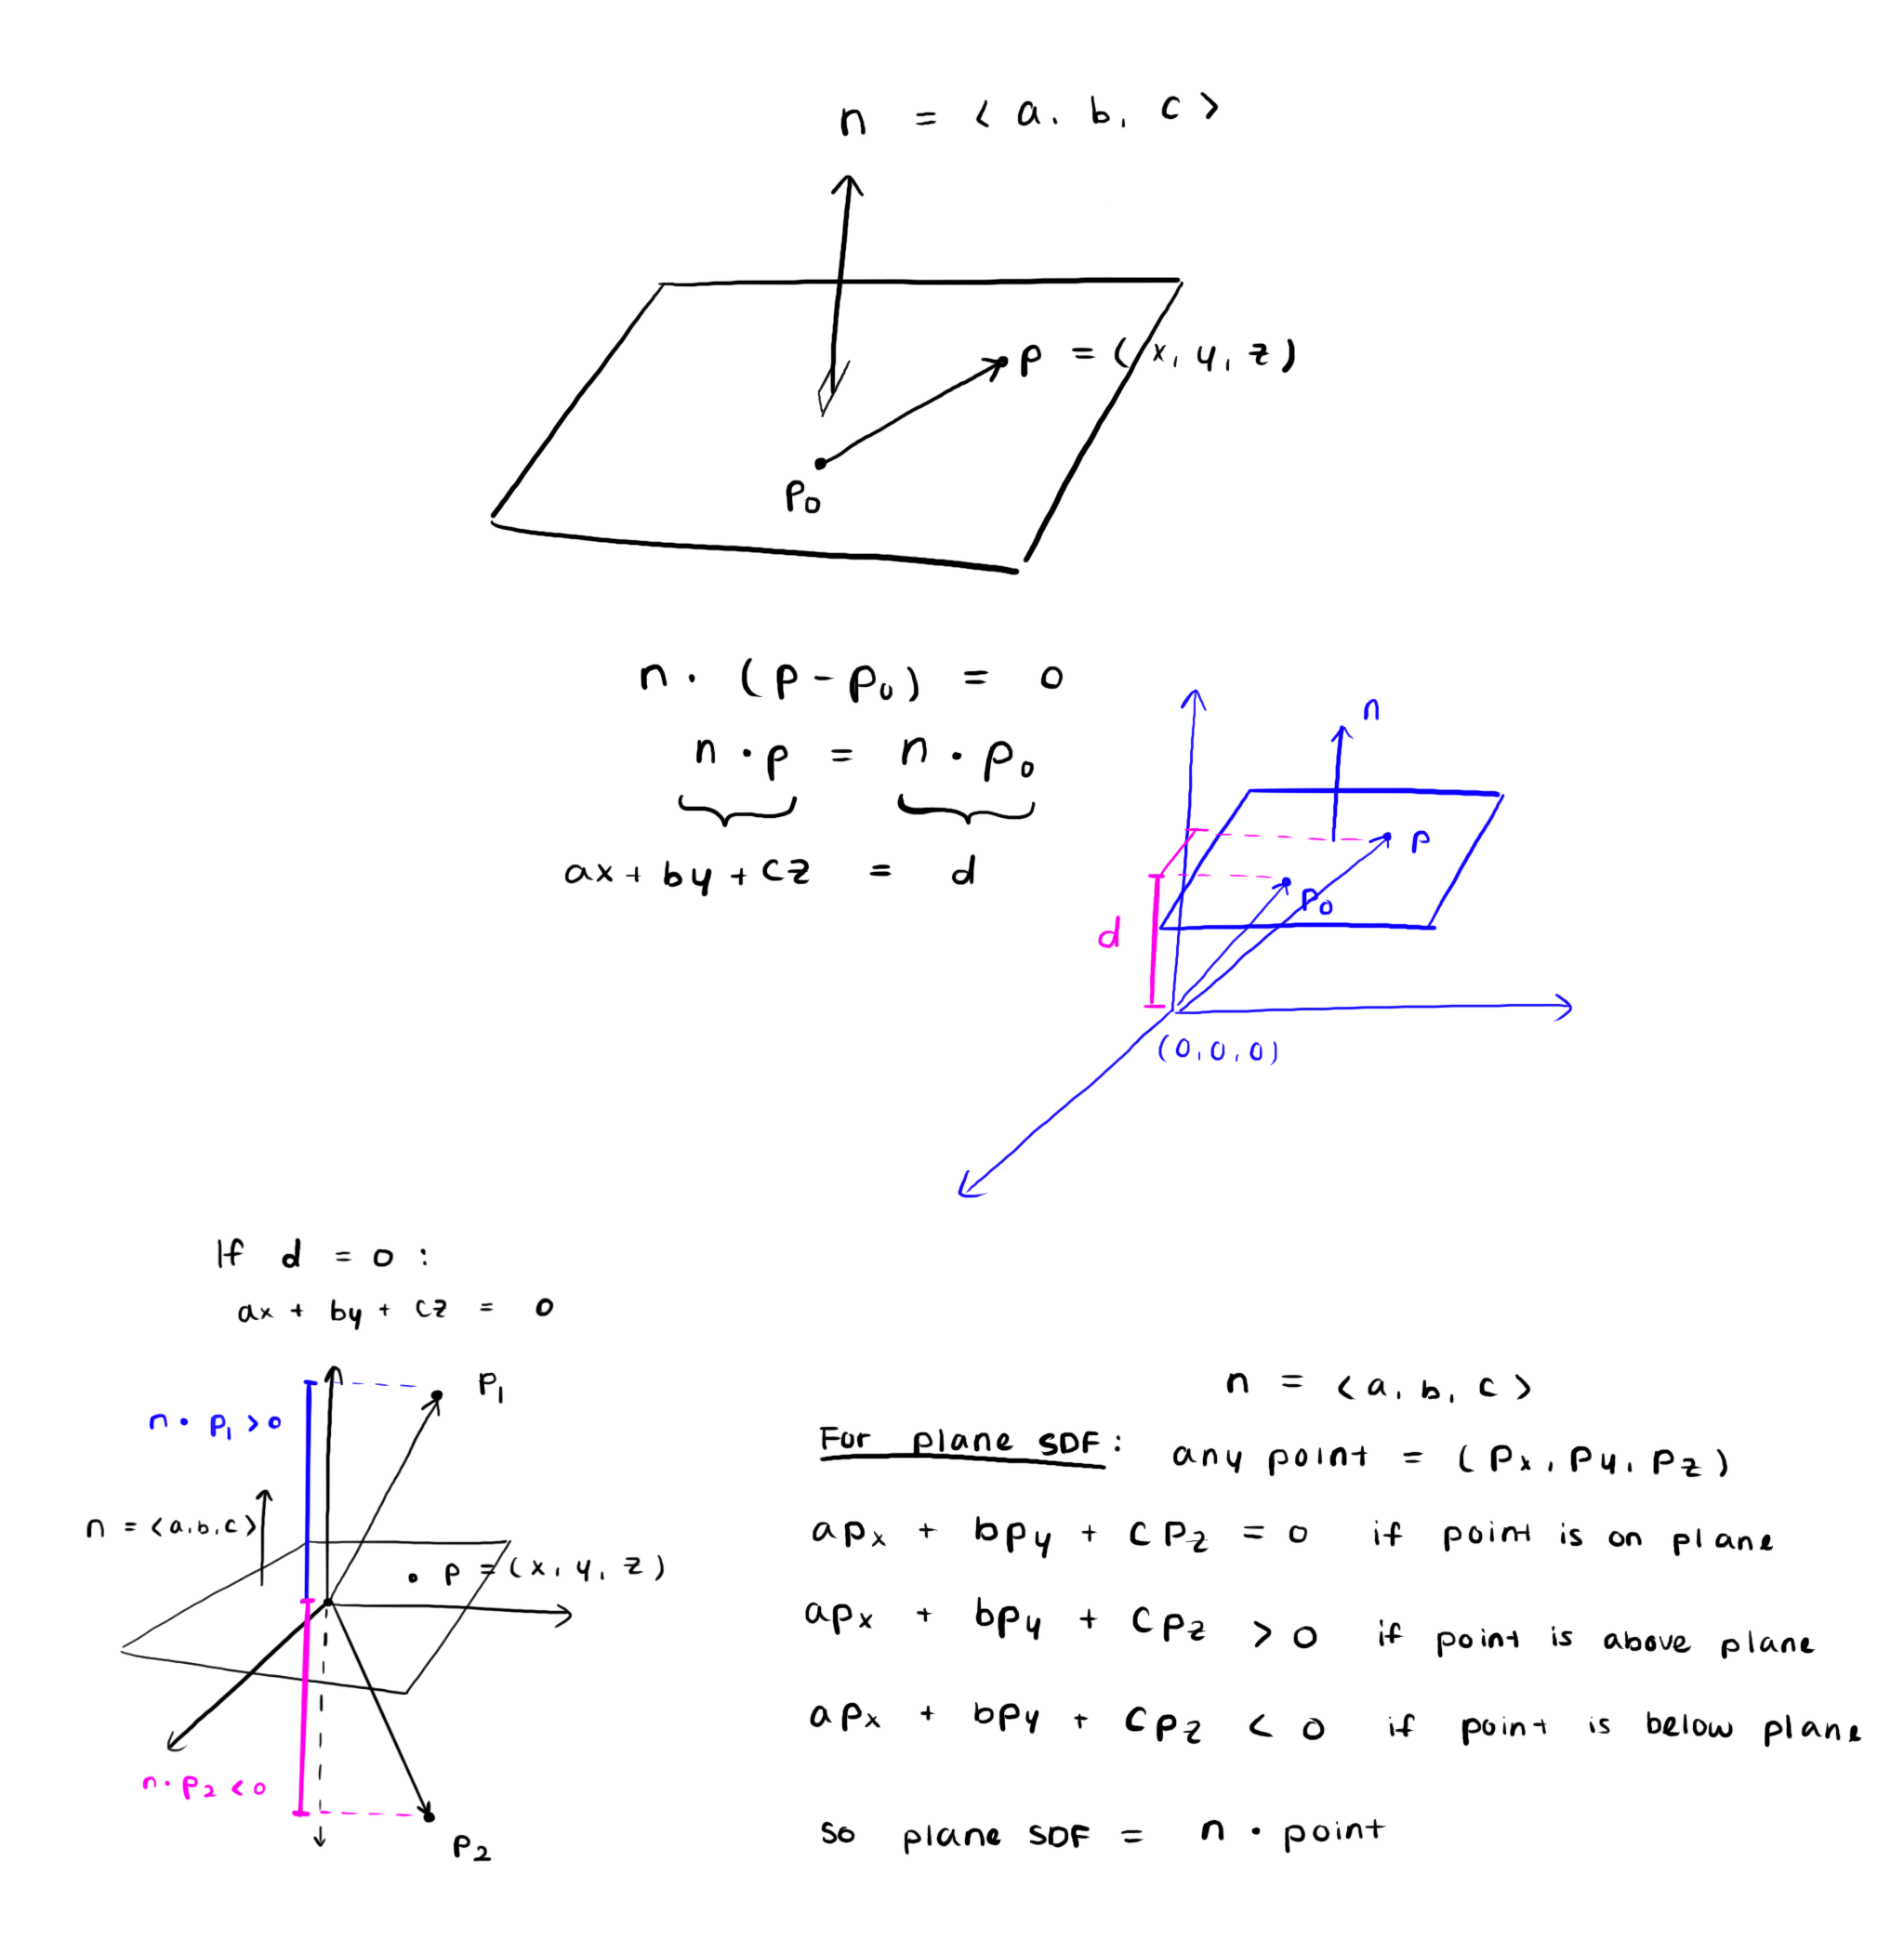 n = < a, b, c >
p = ( x, y, z )
p₀
n · (p - p₀) = 0
n · p = n · p₀
ax + by + cz = d
n
p
p₀
d
(0, 0, 0)
If d = 0 :
ax + by + cz = 0
p₁
n · p₁ > 0
n = <a, b, c>
p = (x, y, z)
n · p₂ < 0
p₂
n = < a, b, c >
For plane SDF: any point = ( Px, Py, Pz )
apx + bpy + cpz = 0 if point is on plane
apx + bpy + cpz > 0 if point is above plane
apx + bpy + cpz < 0 if point is below plane
so plane SDF = n · point